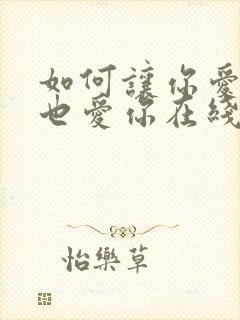 如何讓你愛
也愛你在綫
怡樂草